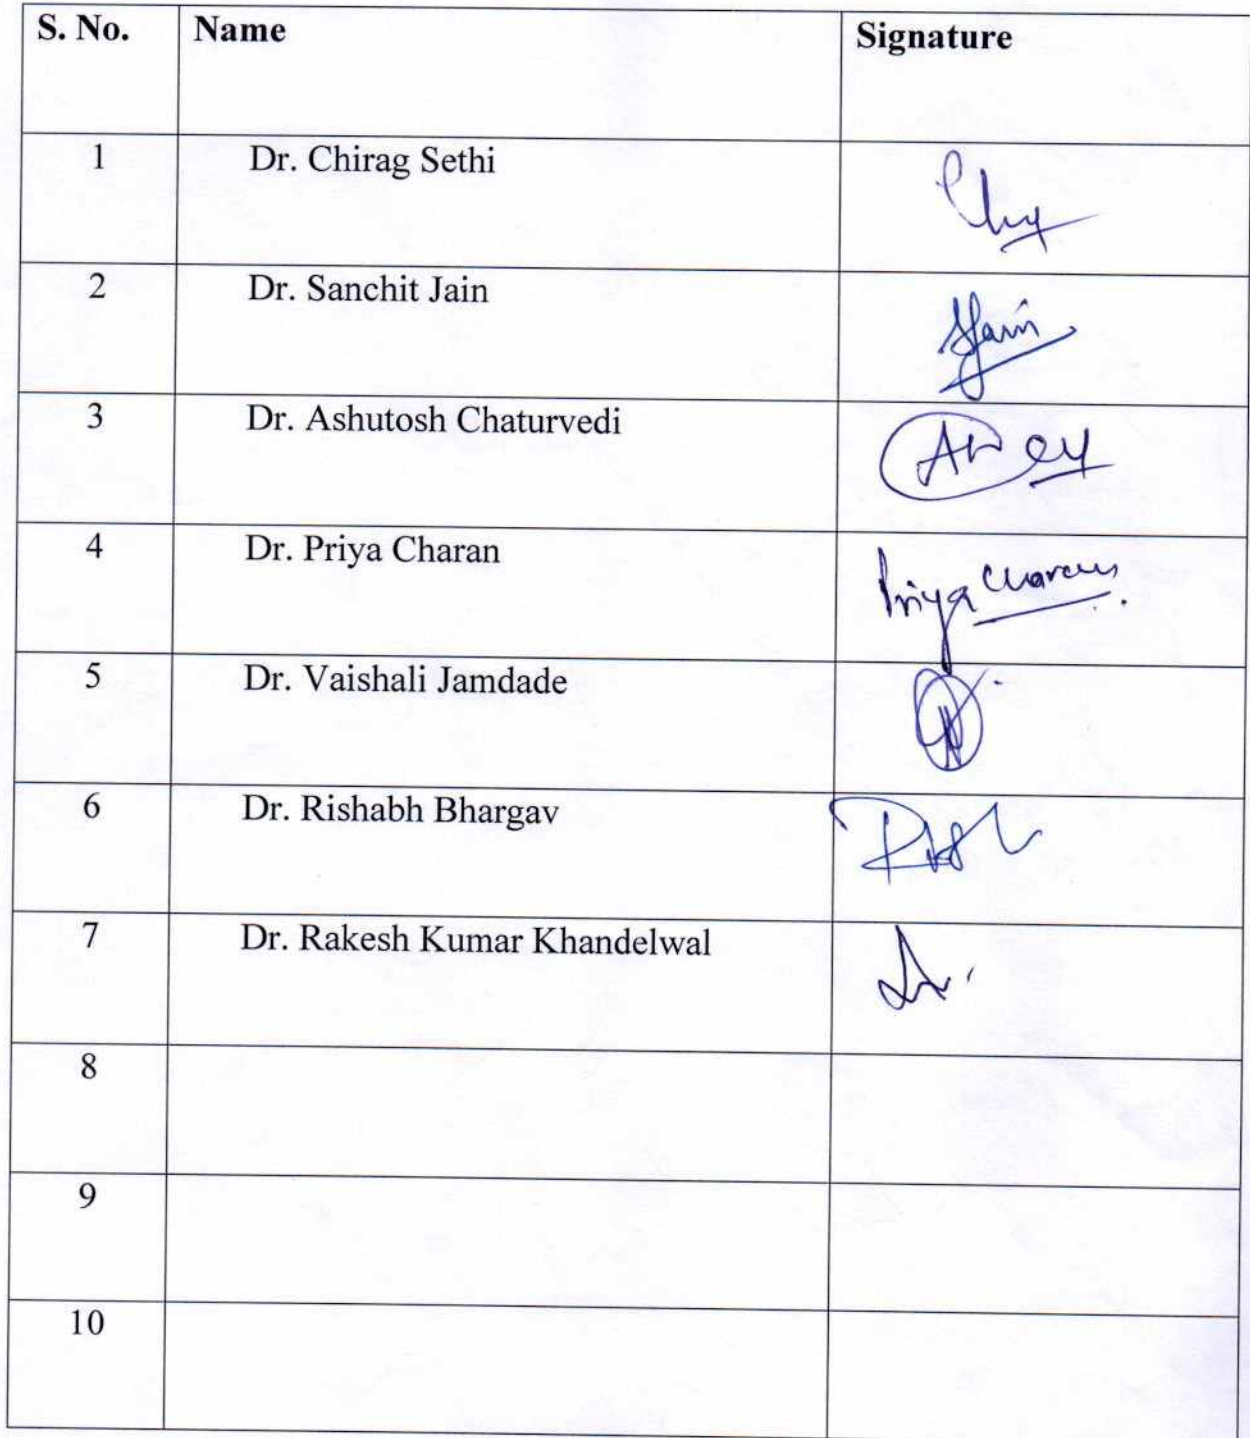 S. No. Name Signature
1 Dr. Chirag Sethi
2 Dr. Sanchit Jain SJain
3 Dr. Ashutosh Chaturvedi
4 Dr. Priya Charan Priya Charan
5 Dr. Vaishali Jamdade
6 Dr. Rishabh Bhargav
7 Dr. Rakesh Kumar Khandelwal
8
9
10